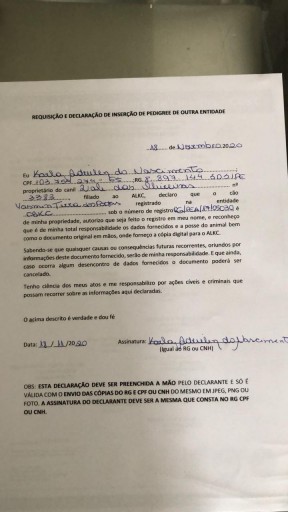 REQUISIÇÃO E DECLARAÇÃO DE INSERÇÃO DE PEDIGREE DE OUTRA ENTIDADE
18 de Novembro 2020
Eu Karla Adrielen do Nascimento
CPF RG
proprietário do canil nº
3382 filiado ao ALKC, declaro que o cão
registrado na entidade
CBKC sob o número de registro e
de minha propriedade, autorizo que seja feito o registro em meu nome, e reconheço
que é de minha total responsabilidade os dados fornecidos e a posse do animal bem
como o documento original em mãos, onde forneço a cópia digital para o ALKC.
Sabendo-se que quaisquer causas ou consequências futuras recorrentes, oriundos por
informações deste documento fornecido, serão de minha responsabilidade. E que ainda,
caso ocorra algum desencontro de dados fornecidos o documento poderá ser
cancelado.
Tenho ciência dos meus atos e me responsabilizo por ações cíveis e criminais que
possam recorrer sobre as informações aqui declaradas.
O acima descrito é verdade e dou fé
Data: 18/11/2020 Assinatura: Karla Adrielen do Nascimento
(Igual de RG ou CNH)
OBS: ESTA DECLARAÇÃO DEVE SER PREENCHIDA A MÃO PELO DECLARANTE E SÓ É
VÁLIDA COM O ENVIO DAS CÓPIAS DO RG E CPF OU CNH DO MESMO EM JPEG, PNG OU
FOTO. A ASSINATURA DO DECLARANTE DEVE SER A MESMA QUE CONSTA NO RG CPF
OU CNH.